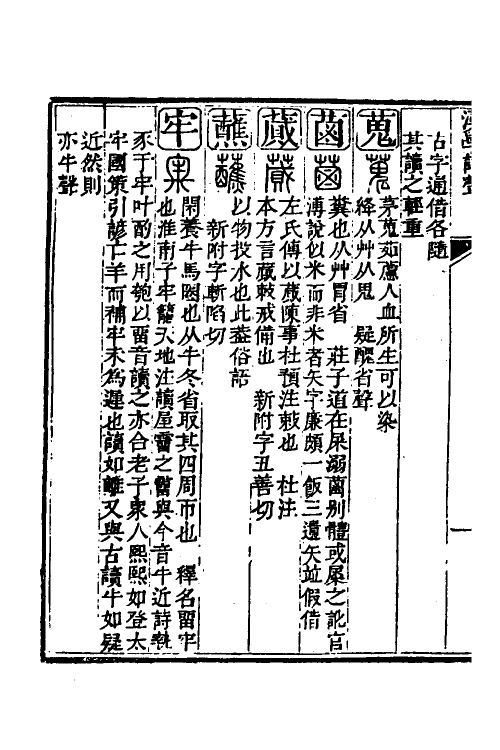 古字通借各隨
其讀之輕重
蒐 茅蒐茹藘人血所生可以染
絳从艸从鬼　疑醜省聲
𦳊 糞也从艸胃省　莊子道在屎溺𦳊别體或屎之訛官
溥說似米而非米者矢字廉頗一飯三遺矢竝假借
蕆 左氏傳以蕆陳事杜預注敕也　杜注
本方言蕆敕戒備也　新附字丑善切
蘸 以物投水也此葢俗語
新附字斬陷切
牢 閑養牛馬圈也从牛冬省取其四周帀也　釋名留牢
也淮南子牢籠天地注讀屋霤之霤與今音牛近詩執
豕于牢叶酌之用匏以畱音讀之亦合老子衆人熙熙如登太
牢國策引諺亡羊而補牢未為遲也讀如雖又與古讀牛如疑
近然則
亦牛聲